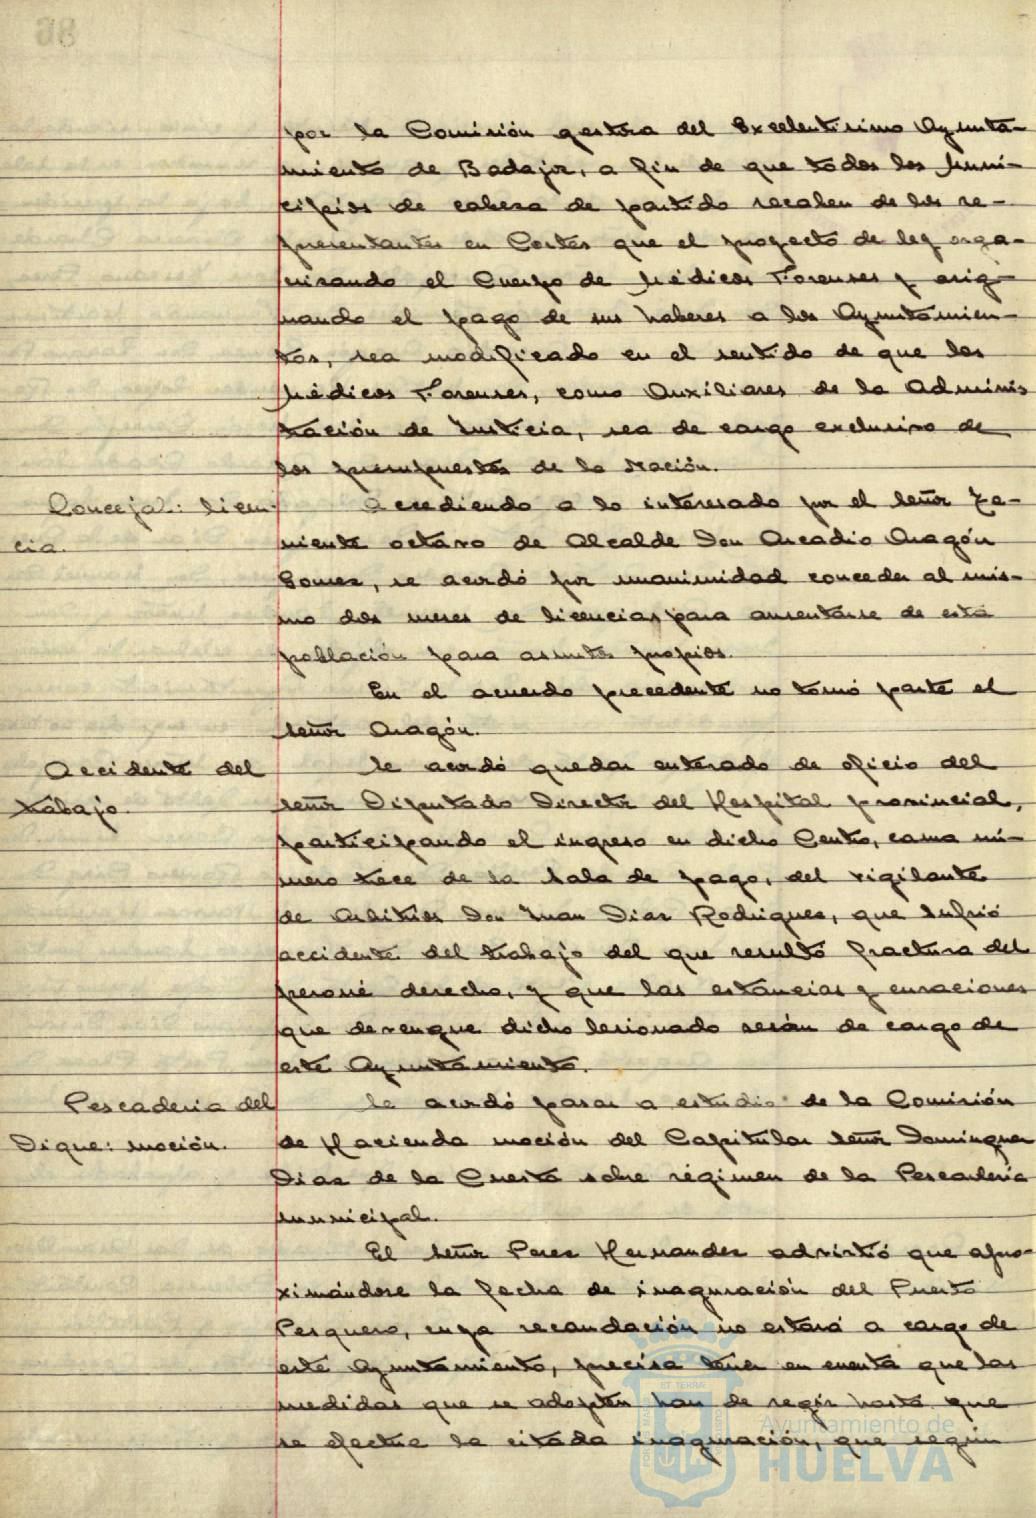 por la Comisión gestora del Excelentísimo Ayunta-
miento de Badajoz, a fin de que todos los Muni-
cipios de cabeza de partido recaben de los re-
presentantes en Cortes que el proyecto de ley orga-
nizando el Cuerpo de Médicos Forenses y asig-
nando el pago de sus haberes a los Ayuntamien-
tos, sea modificado en el sentido de que los
Médicos Forenses, como Auxiliares de la Adminis
tración de Justicia, sea de cargo exclusivo de
los presupuestos de la Nación.
Concejal: licen-
cia.
Accediendo a lo interesado por el Señor Te-
niente octavo de Alcalde Don Arcadio Aragón
Gomez, se acordó por unanimidad conceder al mis-
mo dos meses de licencias para ausentarse de esta
población para asuntos propios.
En el acuerdo precedente no tomó parte el
Señor Aragón.
Accidente del
trabajo.
Se acordó quedar enterado de oficio del
Señor Diputado Director del Hospital provincial,
participando el ingreso en dicho Centro, cama nú-
mero trece de la Sala de pago, del vigilante
de Arbitrios Don Juan Diaz Rodriguez, que sufrió
accidente del trabajo del que resultó fractura del
peroné derecho, y que las estancias y curaciones
que devengue dicho lesionado serán de cargo de
este Ayuntamiento.
Pescaderia del
Dique: moción.
Se acordó pasar a estudio de la Comisión
de Hacienda moción del Capitular Señor Dominguez
Diaz de la Cuesta sobre régimen de la Pescadería
municipal.
El Señor Perez Hernandez advirtió que apro-
ximándose la fecha de inaguración del Puerto
Pesquero, cuya recaudación no estará a cargo de
este Ayuntamiento, precisa tener en cuenta que las
medidas que se adopten han de regir hasta que
se efectue la citada inaguración, que según
Ayuntamiento de
HUELVA